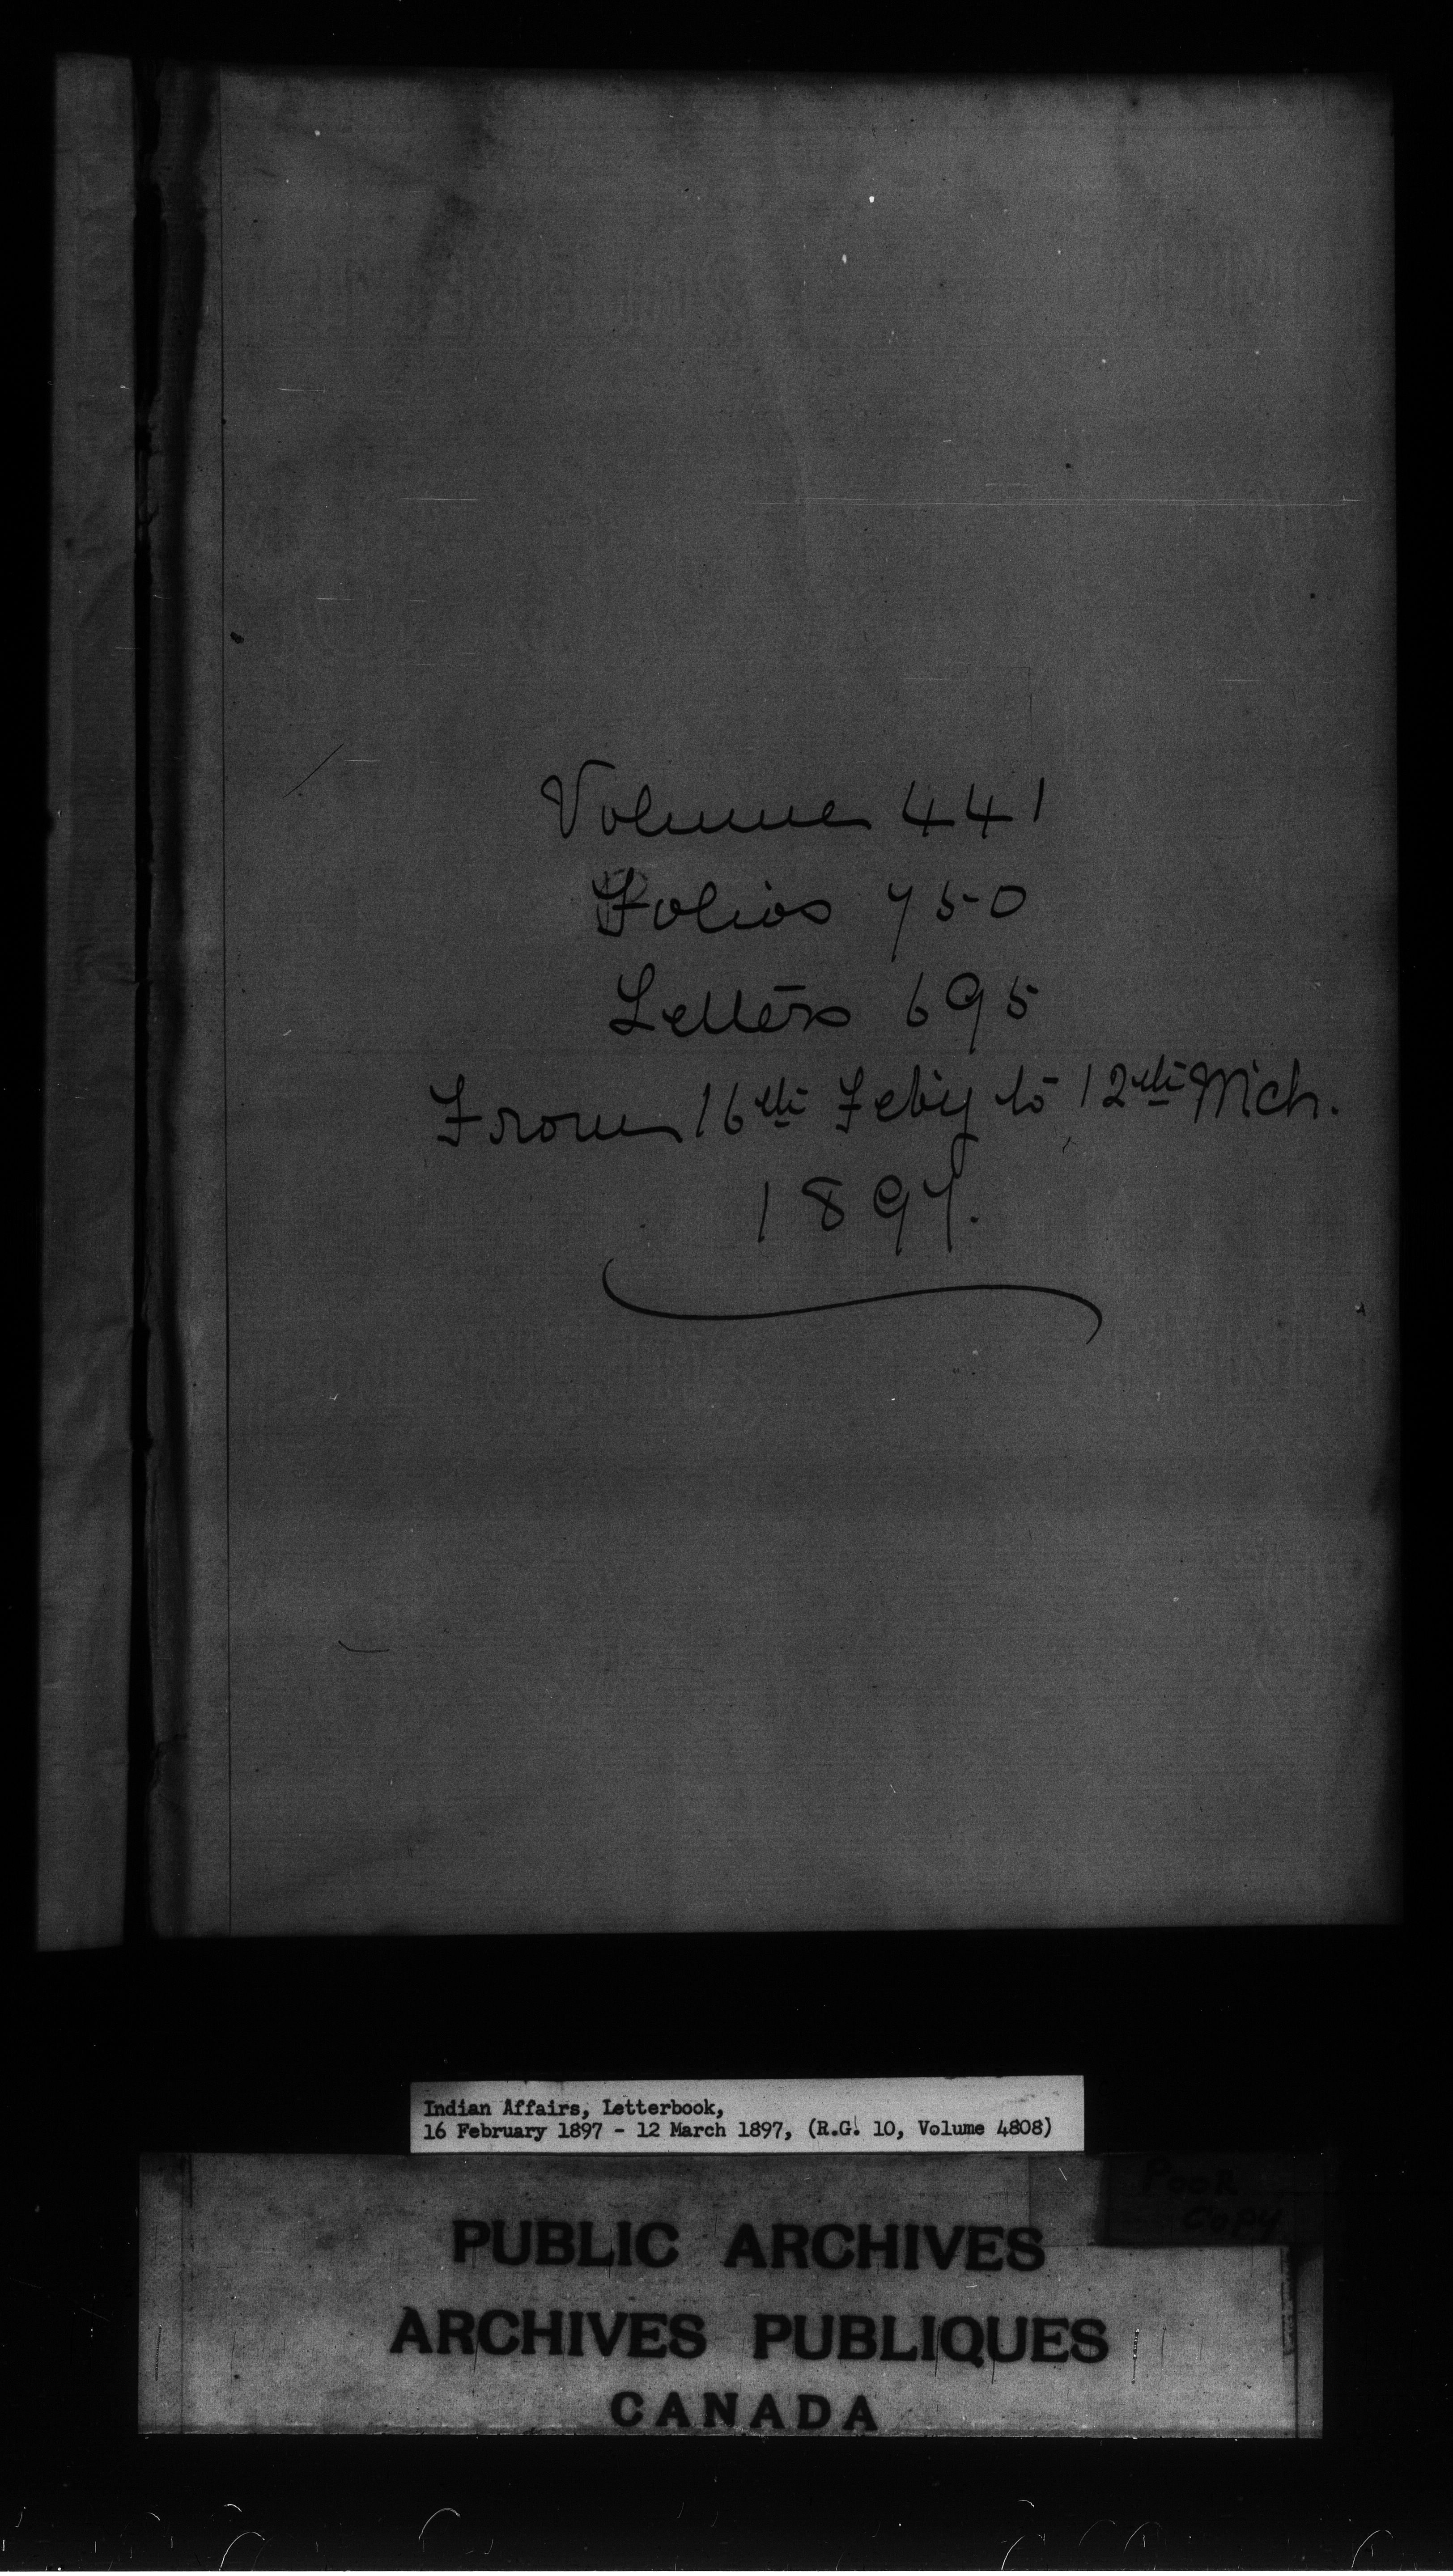 Volume 441
Folios 750
Letters 695
From 16th Feby to 12th Mch.
1897.
Indian Affairs, Letterbook,
16 February 1897 - 12 March 1897, (R.G. 10, Volume 4808)
POOR
COPY
PUBLIC ARCHIVES
ARCHIVES PUBLIQUES
CANADA